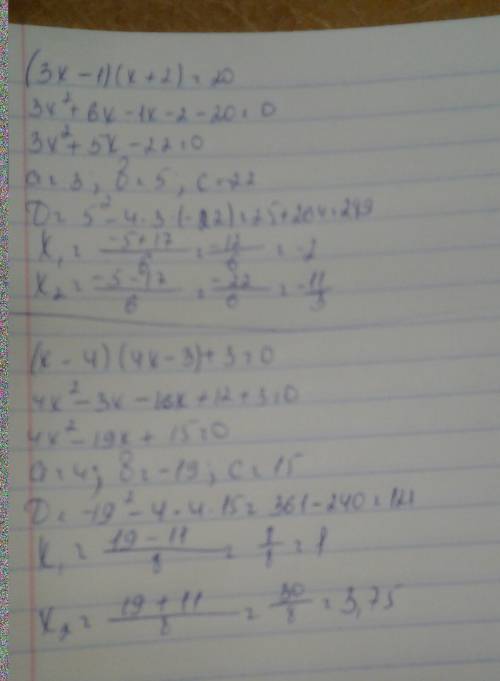 (3x-1)(x+2)=20
3x²+6x-1x-2-20=0
3x²+5x-22=0
a=3; b=5; c=-22
D=5²-4·3(-22)=25+264=289
x₁=(-5+17)/6=-12/6=-2
x₂=(-5-17)/6=-22/6=-11/3
(x-4)(4x-3)+3=0
4x²-3x-16x+12+3=0
4x²-19x+15=0
a=4; b=-19; c=15
D=-19²-4·4·15=361-240=121
x₁=(19-11)/8=8/8=1
x₂=(19+11)/8=30/8=3,75